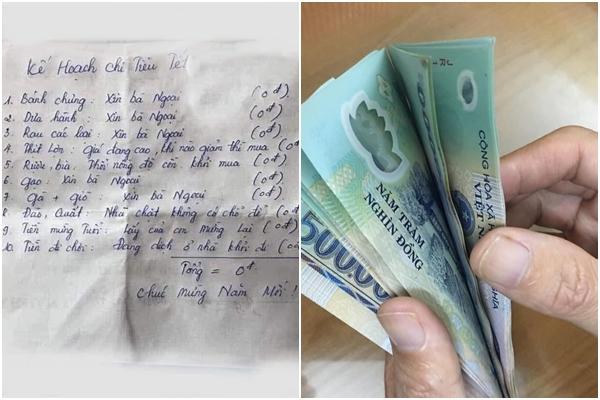 Kế Hoạch chi Tiêu Tết
1. Bánh chưng: Xin bà Ngoại (0đ)
2. Dưa hành: Xin bà Ngoại (0đ)
3. Rau các loại: Xin bà Ngoại (0đ)
4. Thịt Lợn: Giá đang cao, khi nào giảm thì mua (0đ
5. Rượu, bia: Thổi nồng độ cồn khỏi mua (0đ)
6. Gạo: Xin bà Ngoại (0đ)
7. Gà + giò: Xin bà Ngoại (0đ)
8. Đào, Quất: Nhà chật không có chỗ để (0đ)
9. Tiền mừng Tuổi: Lấy của con mừng lại (0đ)
10. Tiền đi chơi: Đang dịch ở nhà khỏi đi (0đ
Tổng = 0đ
Chúc mừng Năm Mới!
NĂM TRĂM
NGHÌN ĐỒNG
50000
CỘNG HÒA XÃ
VIỆT N
NGHĨA
JR 1